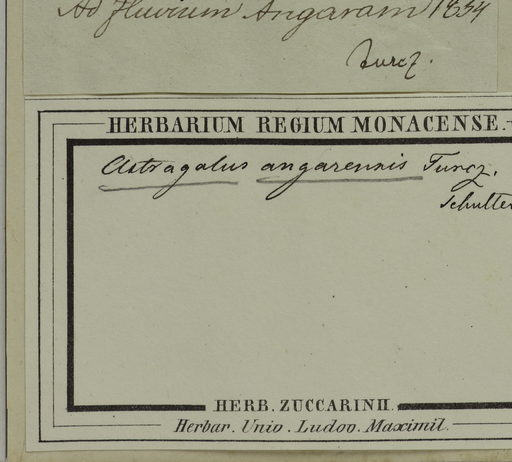 Ad fluvium Angaram 1834
Turcz.
HERBARIUM REGIUM MONACENSE.
Astragalus angarensis Turcz.
Schulter
HERB. ZUCCARINII.
Herbar. Univ. Ludov. Maximil.